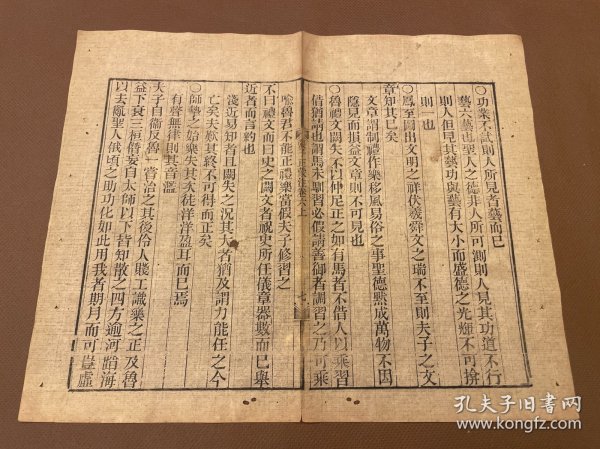 〇功業不試則人所見者藝而已
藝六藝也聖人之德非人所可測則人見其功道不行
則人但見其藝功與藝有大小而盛德之光輝不可揜
則一也
〇鳳至圖出文明之祥伏羲舜文之瑞不至則夫子之文
章知其已矣
文章謂制禮作樂移風易俗之事聖德黙成萬物不因
隱見而損益文章則不可見也
〇魯禮文闕失不以仲尼正之如有馬者不借人以乘習
借猶請也謂馬未馴習必假請善御者調習之乃可乘
喻魯君不能正禮樂當假夫子修習之
不曰禮文而曰史之闕文者祝史所任儀章器數而已舉
近者而言約也
淺近易知者且闕失之況其大者猶及謂力能任之今
亡矣夫嘆其終不可得而正矣
〇師摯之始樂失其次徒洋洋盈耳而已焉
有聲無律則其音濫
夫子自衛反魯一嘗治之其後伶人賤工識樂之正及魯
益下衰三桓僭妄自太師以下皆知散之四方逾河蹈海
以去亂聖人俄頃之助功化如此用我者期月而可豈虛
正蒙注卷六上
七
孔夫子旧书网
www.kongfz.com